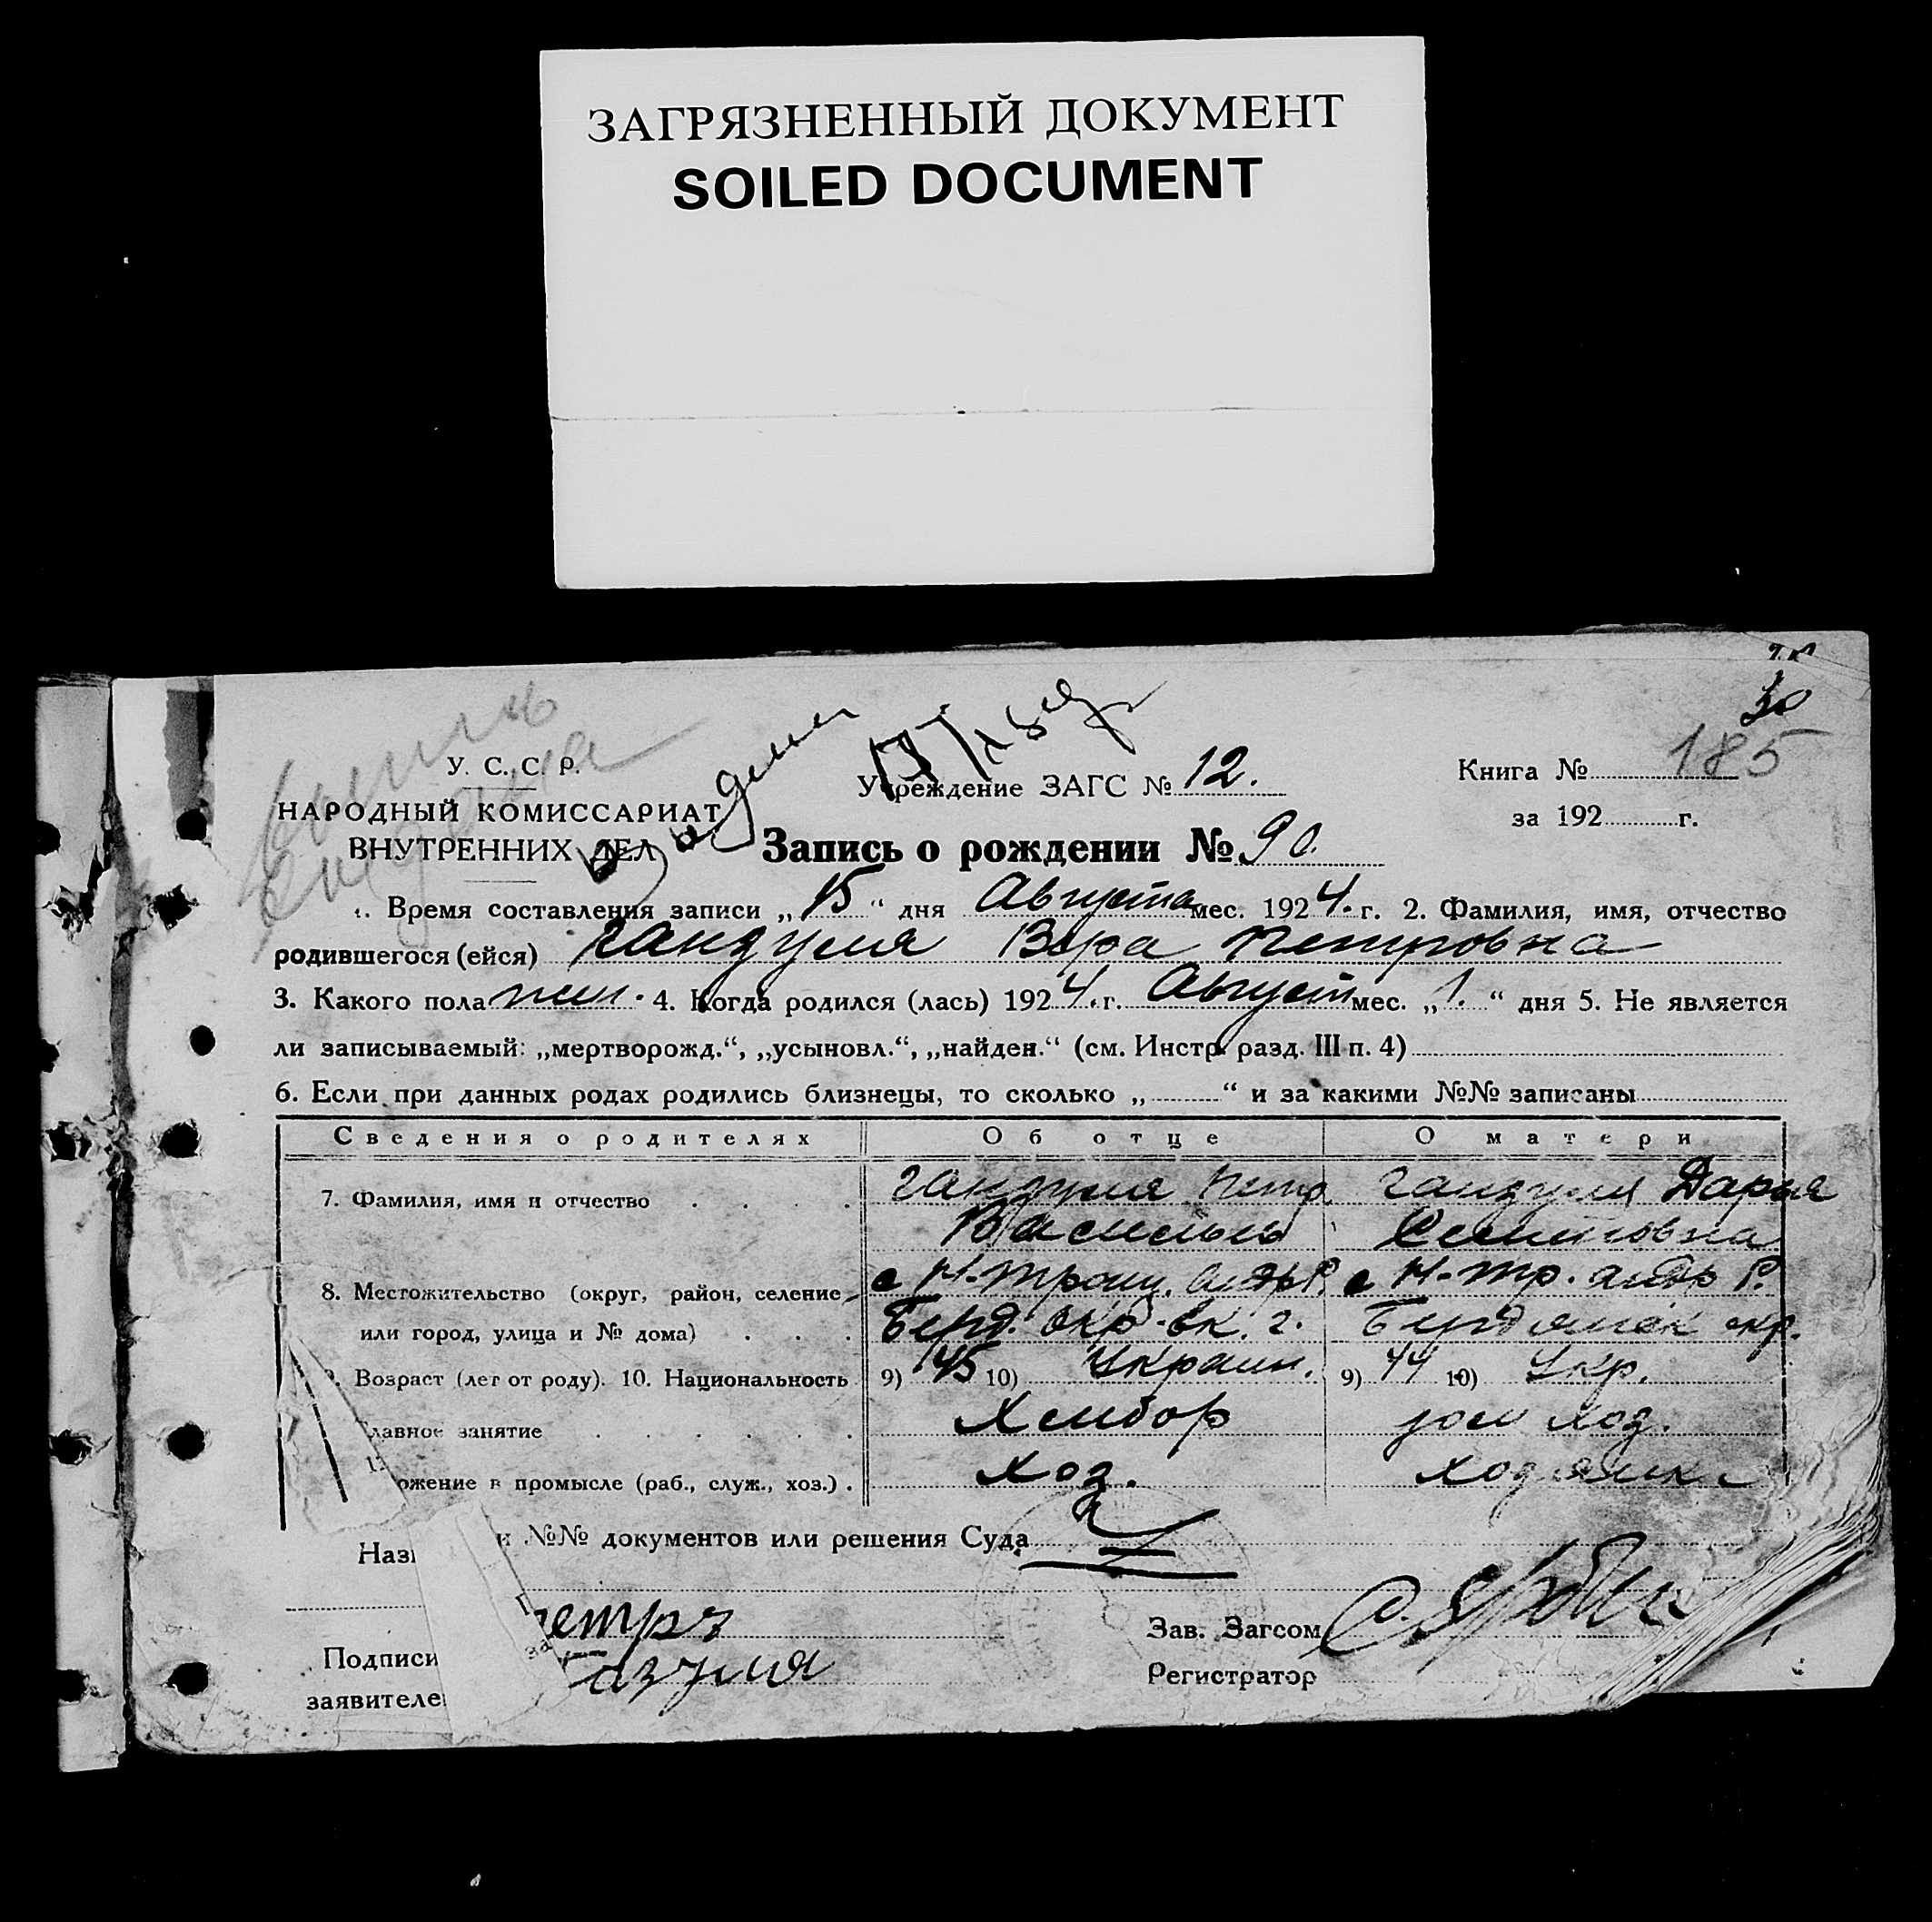 ЗАГРЯЗНЕННЫЙ ДОКУМЕНТ
SOILED DOCUMENT
30
185
У. С. С. Р.
НАРОДНЫЙ КОМИССАРИАТ
ВНУТРЕННИХ ДЕЛ
Учреждение ЗАГС № 12.
Книга №
за 192 г.
Запись о рождении № 90.
1. Время составления записи „ 15 “ дня Августа мес. 1924. г. 2. Фамилия, имя, отчество
родившегося (ейся) Гандзуля Вера Петровна
3. Какого пола жен. 4. Когда родился (лась) 1924. г. Август мес. „ 1. “ дня 5. Не является
ли записываемый: „мертворожд.“, „усыновл.“, „найден.“ (см. Инстр. разд. III п. 4)
6. Если при данных родах родились близнецы, то сколько „ “ и за какими №№ записаны
Сведения о родителях Об отце О матери
7. Фамилия, имя и отчество Петр Дарья
8. Местожительство (округ, район, селение, с Н-Троиц. с Н-Тр. Р.
или город, улица и № дома) Берд. окр. Бердянск окр.
9. Возраст (лет от роду). 10. Национальность 9) 45 10) Украин. 9) 44 10) Укр.
лавное занятие Хлебор дом хоз.
ожение в промысле (раб., служ., хоз.) хоз. хозяйка
Наз и №№ документов или решения Суда
етръ
Подписи
заявителе
Зав. Загсом
Регистратор